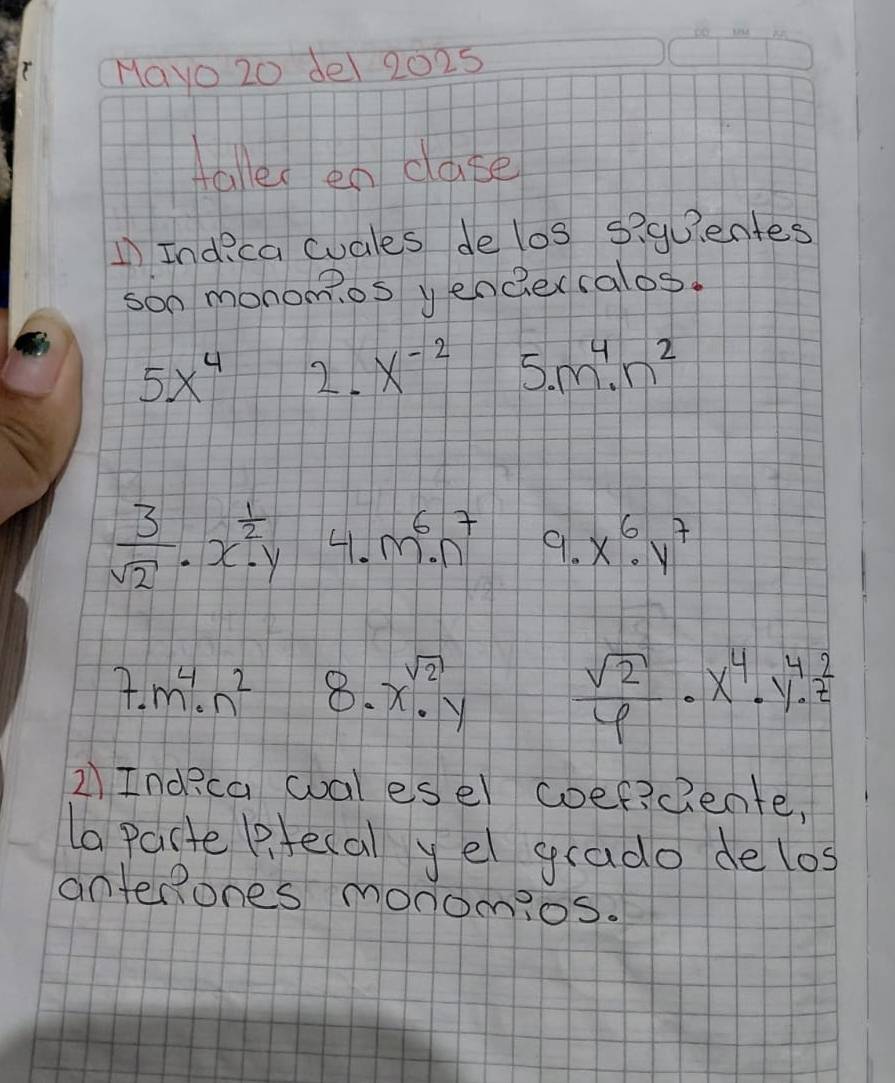 Mayo 20 del 2025
taller en clase
1) Indica cuales de los siguientes
son monomios y encierralos.
5.x⁴ 2.x⁻² 5.m⁴.n²
3/√2 . x^(1/2) . y 4.m⁶.n⁷ 9.x⁶.y⁷
7.m⁴.n² 8.x^(√2).y √2/φ . x⁴.y⁴.z²
2) Indica cual es el coeficiente,
la parte literal y el grado de los
anteriones monomios.